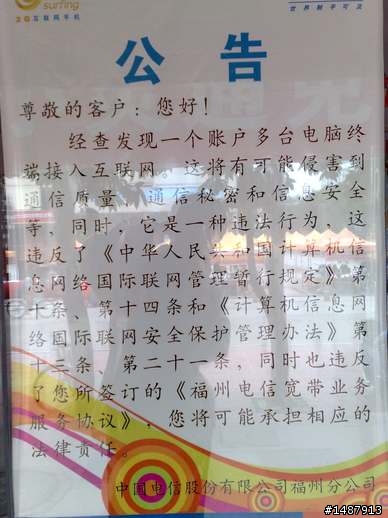 surfing
互联网手机
世界触手可及
公告
尊敬的客户：您好！
经查发现一个账户多台电脑终
端接入互联网。这将有可能侵害到
通信质量、通信秘密和信息安全
等，同时，它是一种违法行为，这
违反了《中华人民共和国计算机信
息网络国际联网管理暂行规定》第
十条、第十四条和《计算机信息网
络国际联网安全保护管理办法》第
十三条、第二十一条，同时也违反
了您所签订的《福州电信宽带业务
服务协议》，您将可能承担相应的
法律责任。
中国电信股份有限公司福州分公司
#1487913